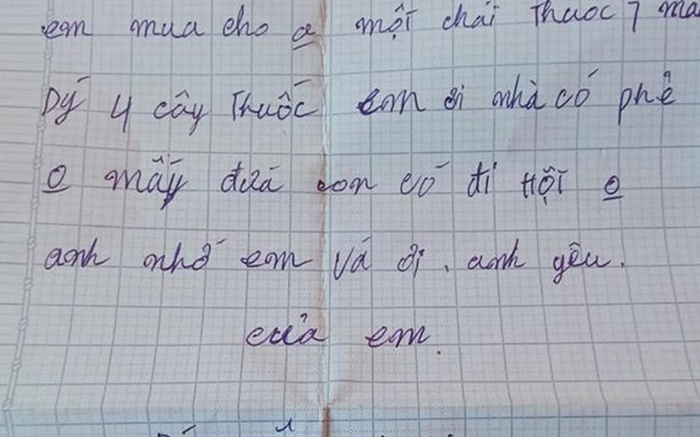 em mua cho a một chai Thuoc 7 ma
Dý 4 cây Thuốc em ơi nhà có phê
o mấy đứa con có đi Hội o
anh nhớ em vá ơi. anh yêu.
của em.